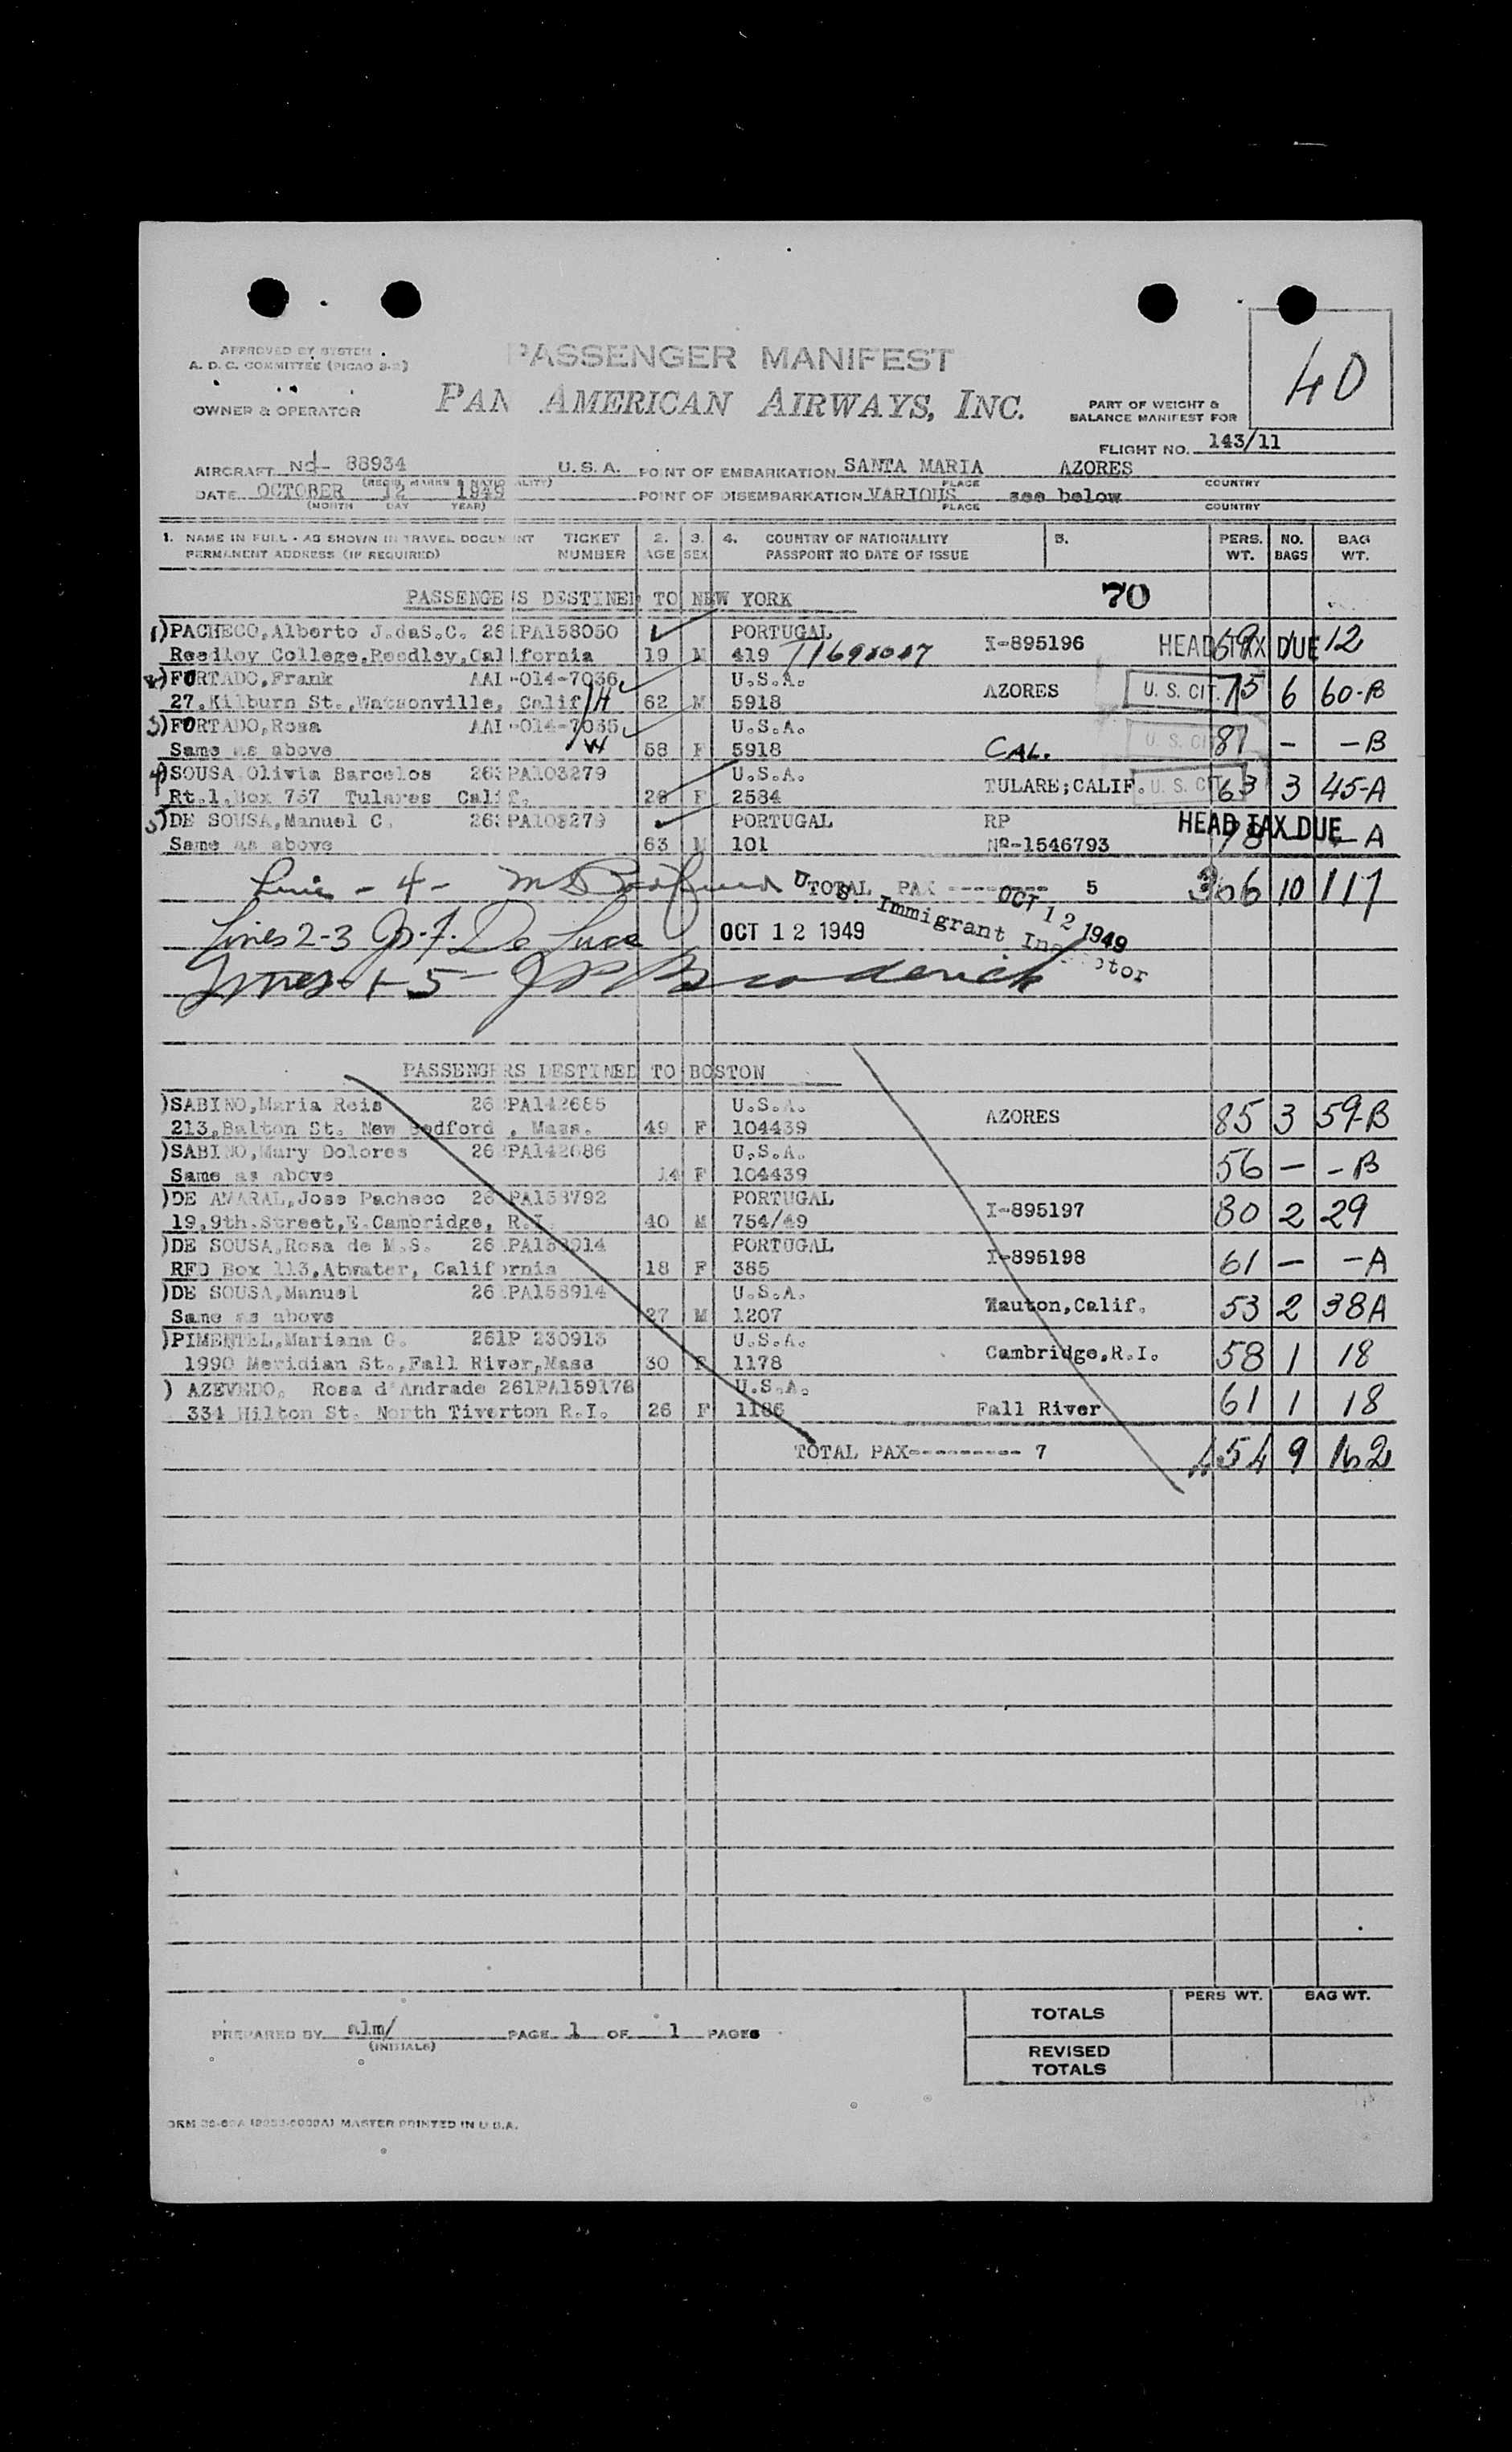 APPROVED BY SYSTEM
A. D. C. COMMITTEE (PICAO 9-2)
PASSENGER MANIFEST
40
OWNER & OPERATOR
PAN AMERICAN AIRWAYS, INC.
PART OF WEIGHT &
BALANCE MANIFEST FOR
FLIGHT NO. 143/11
AIRCRAFT 88934 U.S.A. POINT OF EMBARKATION SANTA MARIA AZORES
(REGIS. MARKS & NATIONALITY) PLACE COUNTRY
DATE OCTOBER 12 1949 POINT OF DISEMBARKATION VARIOUS see below
(MONTH DAY YEAR) PLACE COUNTRY
1. NAME IN FULL - AS SHOWN IN TRAVEL DOCUMENT TICKET 2. 3. 4. COUNTRY OF NATIONALITY 5. PERS. NO. BAG
PERMANENT ADDRESS (IF REQUIRED) NUMBER AGE SEX PASSPORT NO DATE OF ISSUE WT. BAGS WT.
PASSENGERS DESTINED TO NEW YORK 70
1)PACHECO,Alberto J.daS.C. 261PA158050 PORTUGAL
Reedley College,Reedley,California 19 M 419 I-895196 HEAD TAX DUE 59 1 12
2)FURTADO,Frank AAL-014-7036 U.S.A.
27,Kilburn St.,Watsonville, Calif 62 M 5918 AZORES U. S. CIT. 75 6 60-B
3)FURTADO,Rosa AAL-014-7035 U.S.A.
Same as above 58 F 5918 CAL. U. S. CIT. 81 - -B
4)SOUSA,Olivia Barcelos 263PA103279 U.S.A.
Rt.1,Box 757 Tulares Calif. 28 F 2584 TULARE;CALIF. U. S. CIT. 63 3 45-A
5)DE SOUSA,Manuel C. 263PA103279 PORTUGAL RP
Same as above 63 M 101 Nº-1546793 HEAD TAX DUE 78 -A
Line - 4 - TOTAL PAX --------- 5 306 10 117
U. S. Immigrant Inspector OCT 12 1949
Lines 2-3 Jo. F. De Luca OCT 12 1949
Lines 1-5 - J P Broderick
PASSENGERS DESTINED TO BOSTON
)SABINO,Maria Reis 26 PA142685 U.S.A.
213,Balton St. New Bedford , Mass. 49 F 104439 AZORES 85 3 59-B
)SABINO,Mary Dolores 26 PA142686 U.S.A.
Same as above 14 F 104439 56 - -B
)DE AMARAL,Jose Pacheco 26 PA158792 PORTUGAL
19,9th.Street,E.Cambridge, R.I. 40 M 754/49 I-895197 80 2 29
)DE SOUSA,Rosa de M.S. 26 PA158914 PORTUGAL
RFD Box 113,Atwater, California 18 F 385 I-895198 61 - -A
)DE SOUSA,Manuel 26 PA158914 U.S.A.
Same as above 27 M 1207 Tauton,Calif. 53 2 38A
)PIMENTEL,Mariana G. 261P 230913 U.S.A.
1990 Meridian St.,Fall River,Mass 30 F 1178 Cambridge,R.I. 58 1 18
) AZEVEDO, Rosa d'Andrade 261PA159178 U.S.A.
334 Hilton St. North Tiverton R.I. 26 F 1186 Fall River 61 1 18
TOTAL PAX---------- 7 454 9 162
PERS WT. BAG WT.
TOTALS
PREPARED BY alm/ PAGE 1 OF 1 PAGES
(INITIALS)
REVISED
TOTALS
MASTER PRINTED IN U.S.A.